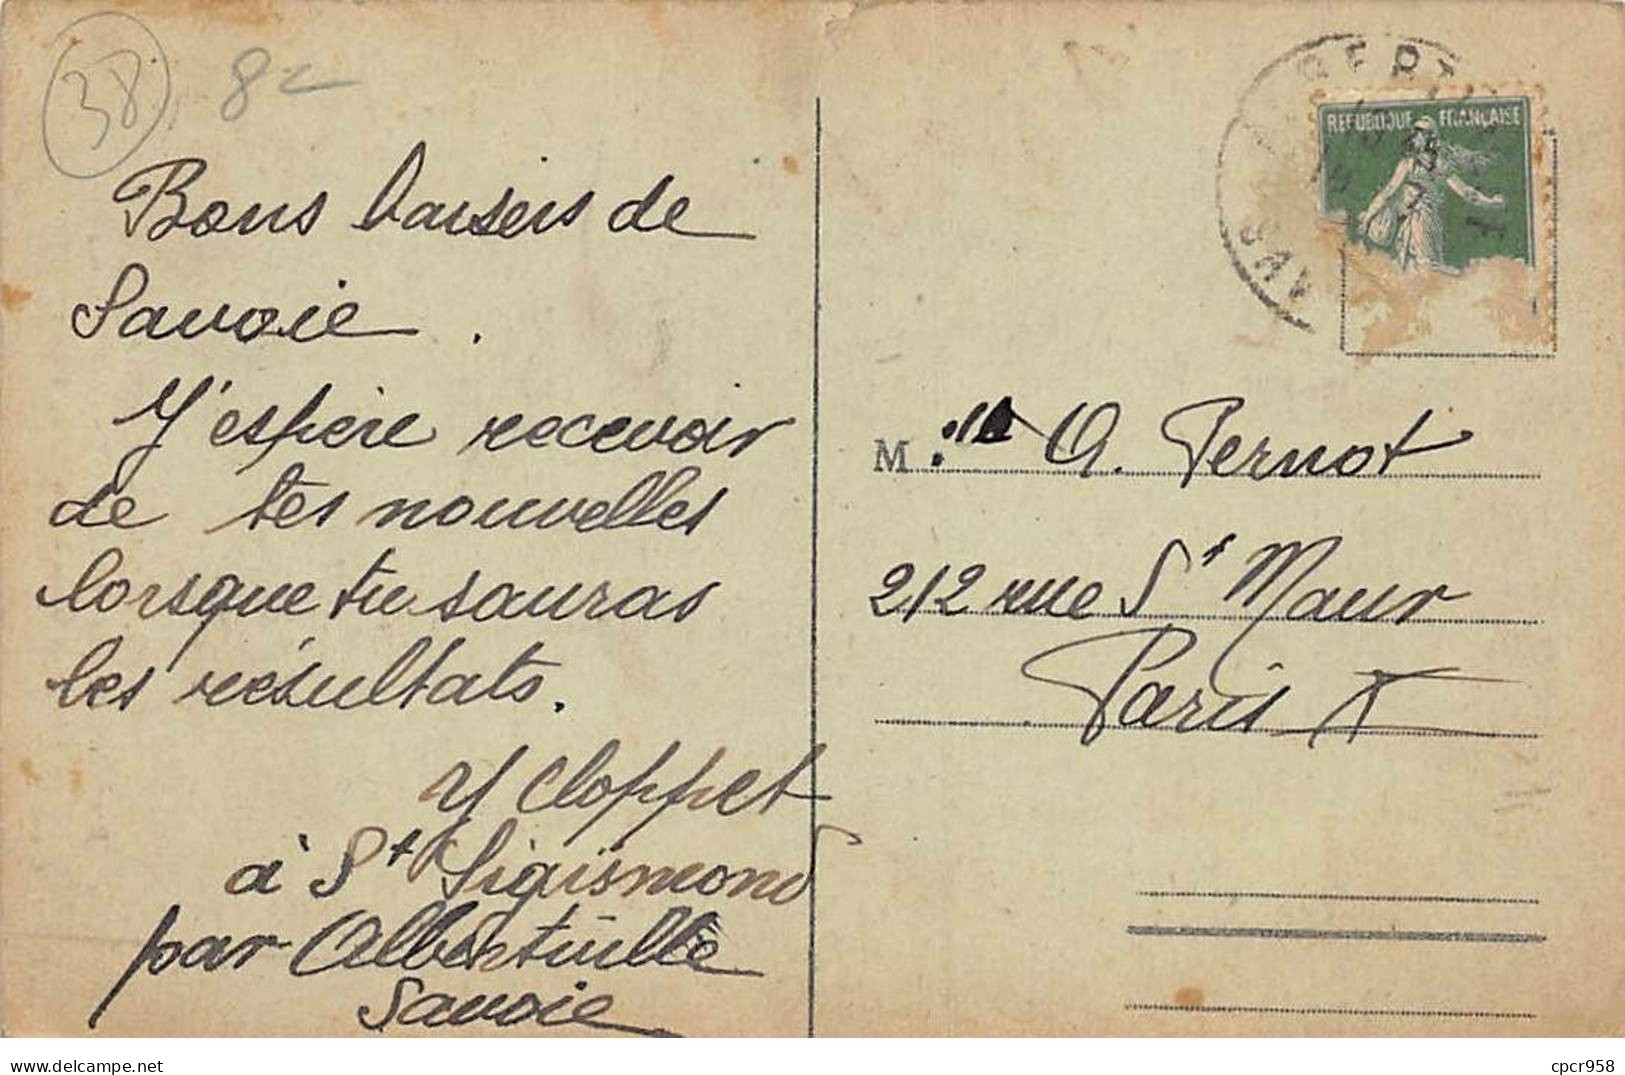 38
82
Bons baisers de
Savoie.
J'espère recevoir
de tes nouvelles
lorsque tu sauras
les résultats.
Y Cloppet
à St Sigismond
par Albertville
Savoie
REPUBLIQUE FRANÇAISE
SAV
M lle A. Pernot
212 rue St Maur
Paris X
delcampe.net
cpcr958